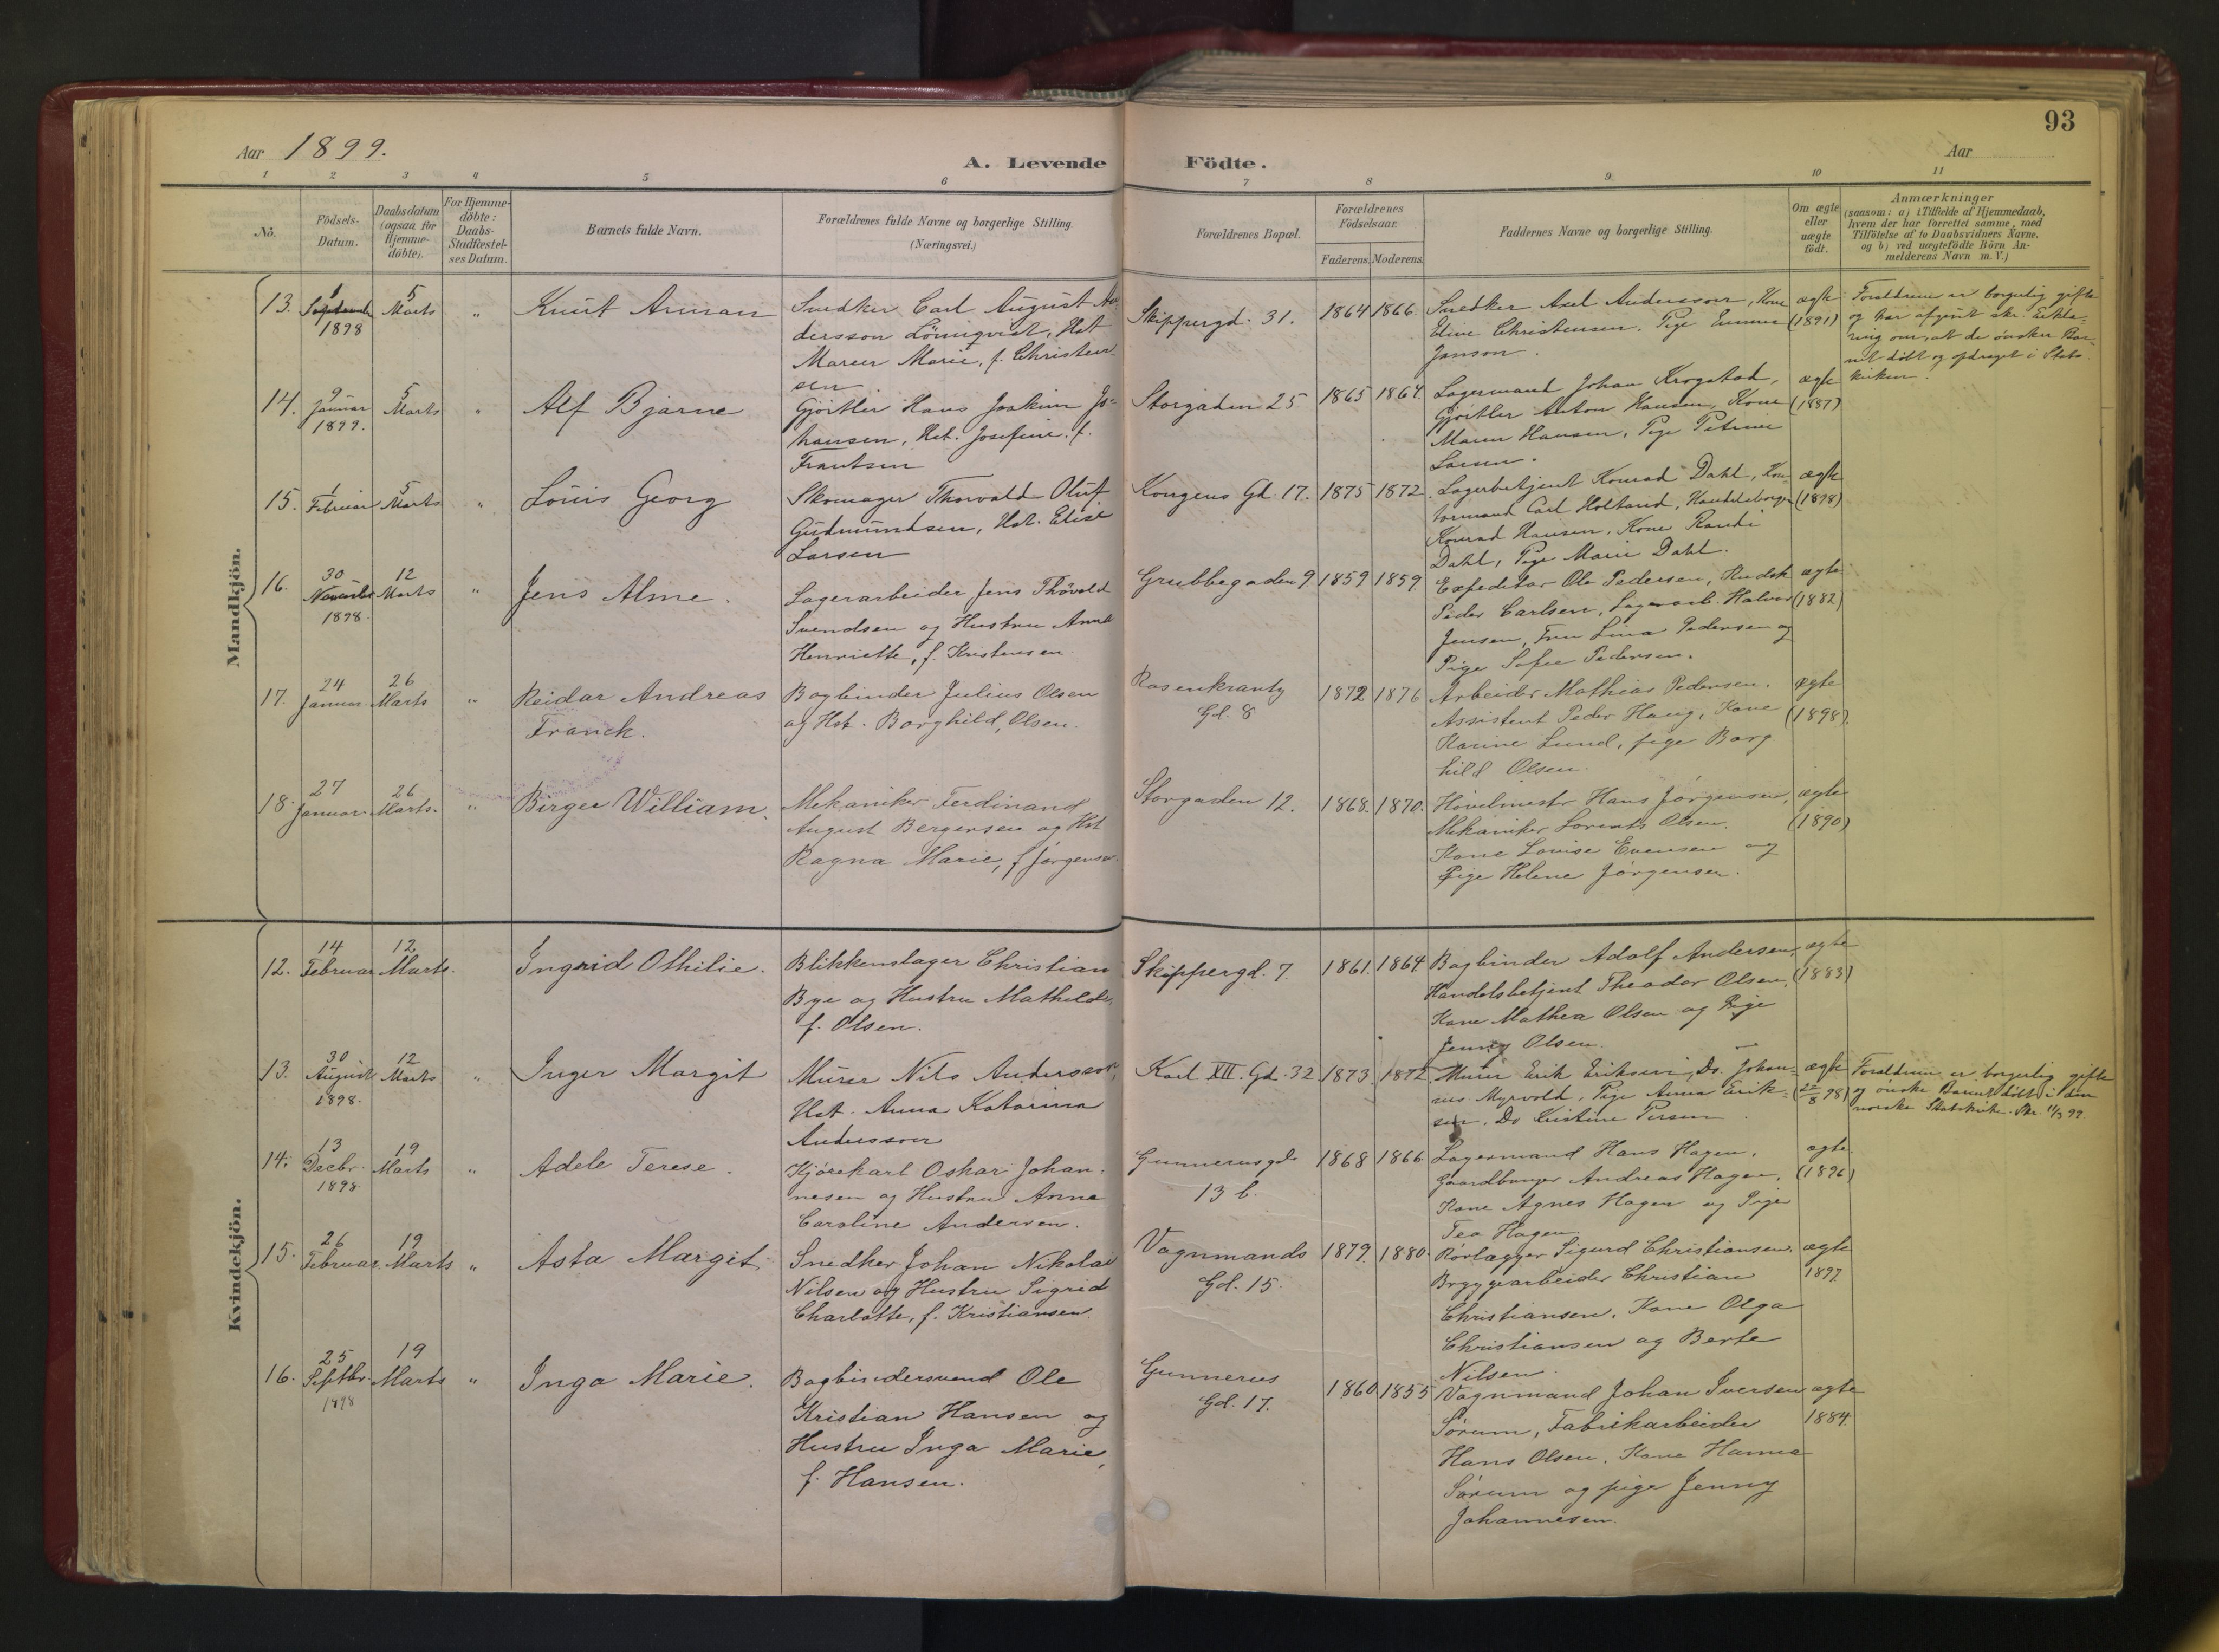 93
Aar 1899.
A. Levende Födte.
Aar
1 2 3 4 5 6 7 8 9 10 11
No.
Födsels-
Datum.
Daabsdatum
(ogsaa for
Hjemme-
döbte).
For Hjemme-
döbte:
Daabs-
Stadfæstel-
ses Datum.
Barnets fulde Navn.
Forældrenes fulde Navne og borgerlige Stilling.
(Næringsvei.)
Forældrenes Bopæl.
Forældrenes
Födselsaar.
Faderens. Moderens.
Faddernes Navne og borgerlige Stilling.
Om ægte
eller
uægte
födt.
Anmærkninger
(saasom: a) i Tilfælde af Hjemmedaab,
hvem der har forrettet samme, med
Tilföielse af to Daabsvidners Navne.
og b) ved uægtefödte Börn An-
melderens Navn m. V.)
Mandkjön.
13.
1
September
1898
5
Marts
"
Knut Arman
Snedker Carl August An-
dersson Lönnqvist, Hst
Maren Marie, f. Christen-
sen
Skippergd. 31.
1864 1866
Snedker Axel Andersson, Kone
Eline Christensen. Pige Emma
Janson.
ægte
(1891)
Forældrene er borgerlig gifte
og har afgivt skr. Erklæ-
ring om, at de ønsker Bar-
net døbt og opdraget i Stats-
kirken.
14.
9
Januar
1899.
5
Marts
"
Alf Bjarne
Gjörtler Hans Joakim Jo-
hansen, Hst. Josefine, f.
Frantsen
Storgaden 25
1865 1864
Lagermand Johan Krogstad,
Gjörtler Anton Hansen, Kone
Maren Hansen, Pige Petrine
Larsen.
ægte
(1887)
15.
1
Februar
5
Marts
"
Louis Georg
Skomager Thorvald Oluf
Gudmundsen, Hst. Elise
Larsen
Kongens Gd. 17.
1875 1872.
Lagerbetjent Konrad Dahl, Kon-
tormand Carl Holtand, Handelsborger
Konrad Hansen, Kone Randi
Dahl, Pige Marie Dahl.
ægte
(1898)
16.
30
November
1898.
12
Marts
"
Jens Alme.
Lagerarbeider Jens Thövald
Svendsen og Hustru Anna
Henriette, f. Kristensen
Grubbegaden 9
1859 1859.
Expeditør Ole Pedersen, Hudsk
Peder Carlsen, Lagerarb. Halvor
Jensen, Fru Lina Pedersen og
Pige Sofie Pedersen.
ægte
(1882)
17.
24
Januar.
26
Marts
"
Reidar Andreas
Franck.
Bogbinder Julius Olsen
og Hst. Borghild, Olsen.
Rosenkrantz
Gd. 8
1872 1876
Arbeider Mathias Pedersen.
Assistent Peder Haug, Kone
Karine Lund, pige Borg
hild Olsen.
ægte
(1898).
18.
27
Januar.
26
Marts.
"
Birger William.
Mekaniker Ferdinand
August Bergersen og Hst
Ragna Marie, f Jørgensen.
Storgaden 12.
1868. 1870.
Hövelmester Hans Jörgensen,
Mekaniker Lorents Olsen.
Kone Lovise Evensen og
Pige Helene Jörgensen.
ægte
(1890)
Kvindekjön.
12.
14
Februar
12
Marts.
Ingrid Othilie.
Blikkenslager Christian
Bye og Hustru Mathilde,
f. Olsen.
Skippergd. 7.
1861. 1864
Bogbinder Adolf Andersen,
Handelsbetjent Theodor Olsen,
Kone Mathea Olsen og Pige
Jenny Olsen.
ægte
(1883)
13.
30
August
1898.
12
Marts
"
Inger Margit
Murer Nils Andersson,
Hst. Anna Katarina
Andersson
Karl XII. Gd. 32
1873 1872
Murer Erik Eriksen, Do. Johan-
nes Myrvold, Pige Anna Erik-
sen. Do Kristine Persen
ægte
(22/8 98)
Forældrene er borgerlig gifte
og ønske Barnet døbt i den
norske Statskirke. Skr. 11/3 99.
14.
13
Decbr.
1898.
19
Marts
"
Adele Terese.
Kjörekarl Oskar Johan-
nesen og Hustru Anna
Caroline Andersen.
Gunnerusgd.
13 b.
1868 1866
Lagermand Hans Hagen,
Gaardbruger Andreas Hagen,
Kone Agnes Hagen og Pige
Tea Hagen
ægte.
(1896)
15.
26
Februar.
19
Marts
"
Asta Margit.
Snedker Johan Nikolai
Nilsen og Hustru Sigrid
Charlotte, f. Kristiansen.
Vognmands
Gd. 15.
1879. 1880.
Rörlægger Sigurd Christiansen.
Bryggearbeider Christian
Christiansen. Kone Olga
Christiansen og Berte
Nilsen.
ægte
1897
16.
25
Septbr.
1898
19
Marts
"
Inga Marie.
Bogbindersvend Ole
Kristian Hansen og
Hustru Inga Marie,
f. Hansen.
Gunnerus
Gd. 17.
1860 1855
Vognmand Johan Iversen
Sörum, Fabrikarbeider
Hans Olsen. Kone Hanna
Sörum og pige Jenny
Johannesen.
ægte
1884.